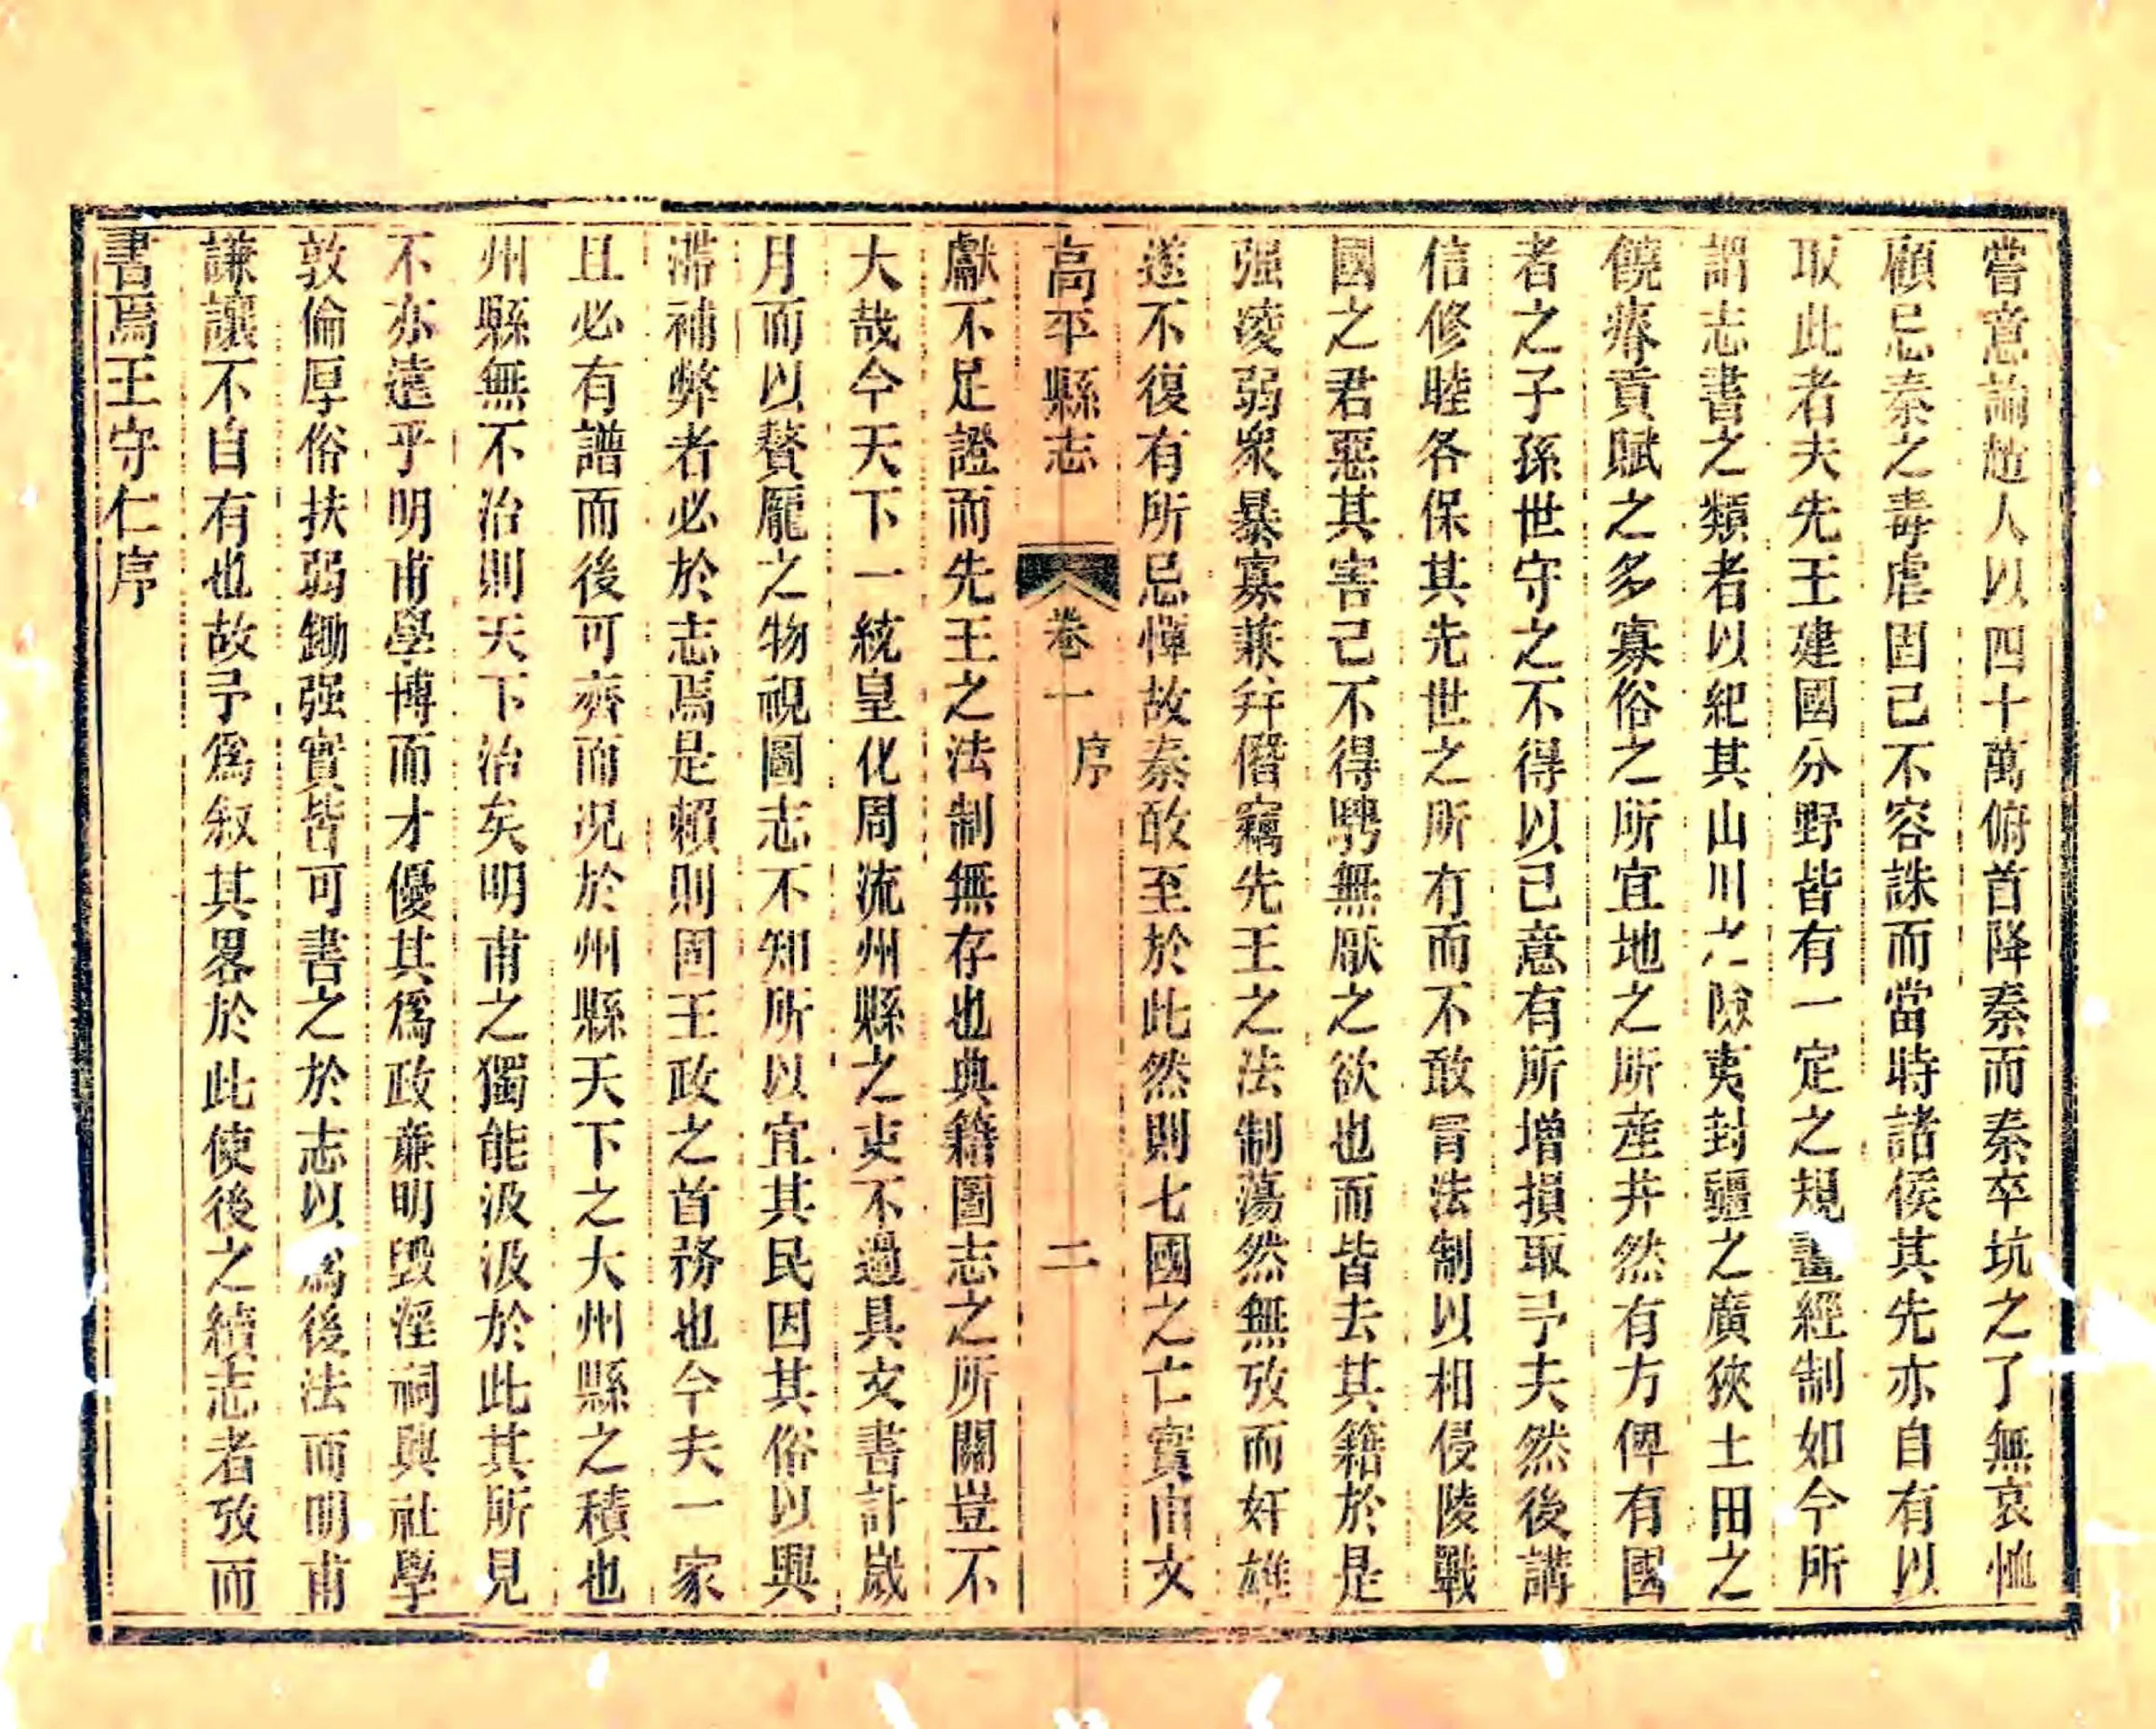 嘗意論趙人以四十萬俯首降秦而秦卒坑之了無哀恤
顧忌秦之毒虐固已不容誅而當時諸侯其先亦自有以
取此者夫先王建國分野皆有一定之規畫經制如今所
謂志書之類者以紀其山川之險夷封疆之廣狹土田之
饒瘠貢賦之多寡俗之所宜地之所產井然有方俾有國
者之子孫世守之不得以己意有所增損取予夫然後講
信修睦各保其先世之所有而不敢冒法制以相侵陵戰
國之君惡其害己不得騁無厭之欲也而皆去其籍於是
强凌弱衆暴寡兼并僭竊先王之法制蕩然無攷而奸雄
遂不復有所忌憚故秦敢至於此然則七國之亡實由文
高平縣志
卷一
序
二
獻不足證而先王之法制無存也典籍圖志之所關豈不
大哉今天下一統皇化周流州縣之吏不過具文書計歲
月而以贅厖之物視圖志不知所以宜其民因其俗以興
滯補弊者必於志焉是賴則固王政之首務也今夫一家
且必有譜而後可齊而況於州縣天下之大州縣之積也
州縣無不治則天下治矣明甫之獨能汲汲於此其所見
不亦遠乎明甫學博而才優其爲政亷明毀淫祠興社學
敦倫厚俗扶弱鋤强實皆可書之於志以爲後法而明甫
謙讓不自有也故予爲叙其畧於此使後之續志者攷而
書焉王守仁序